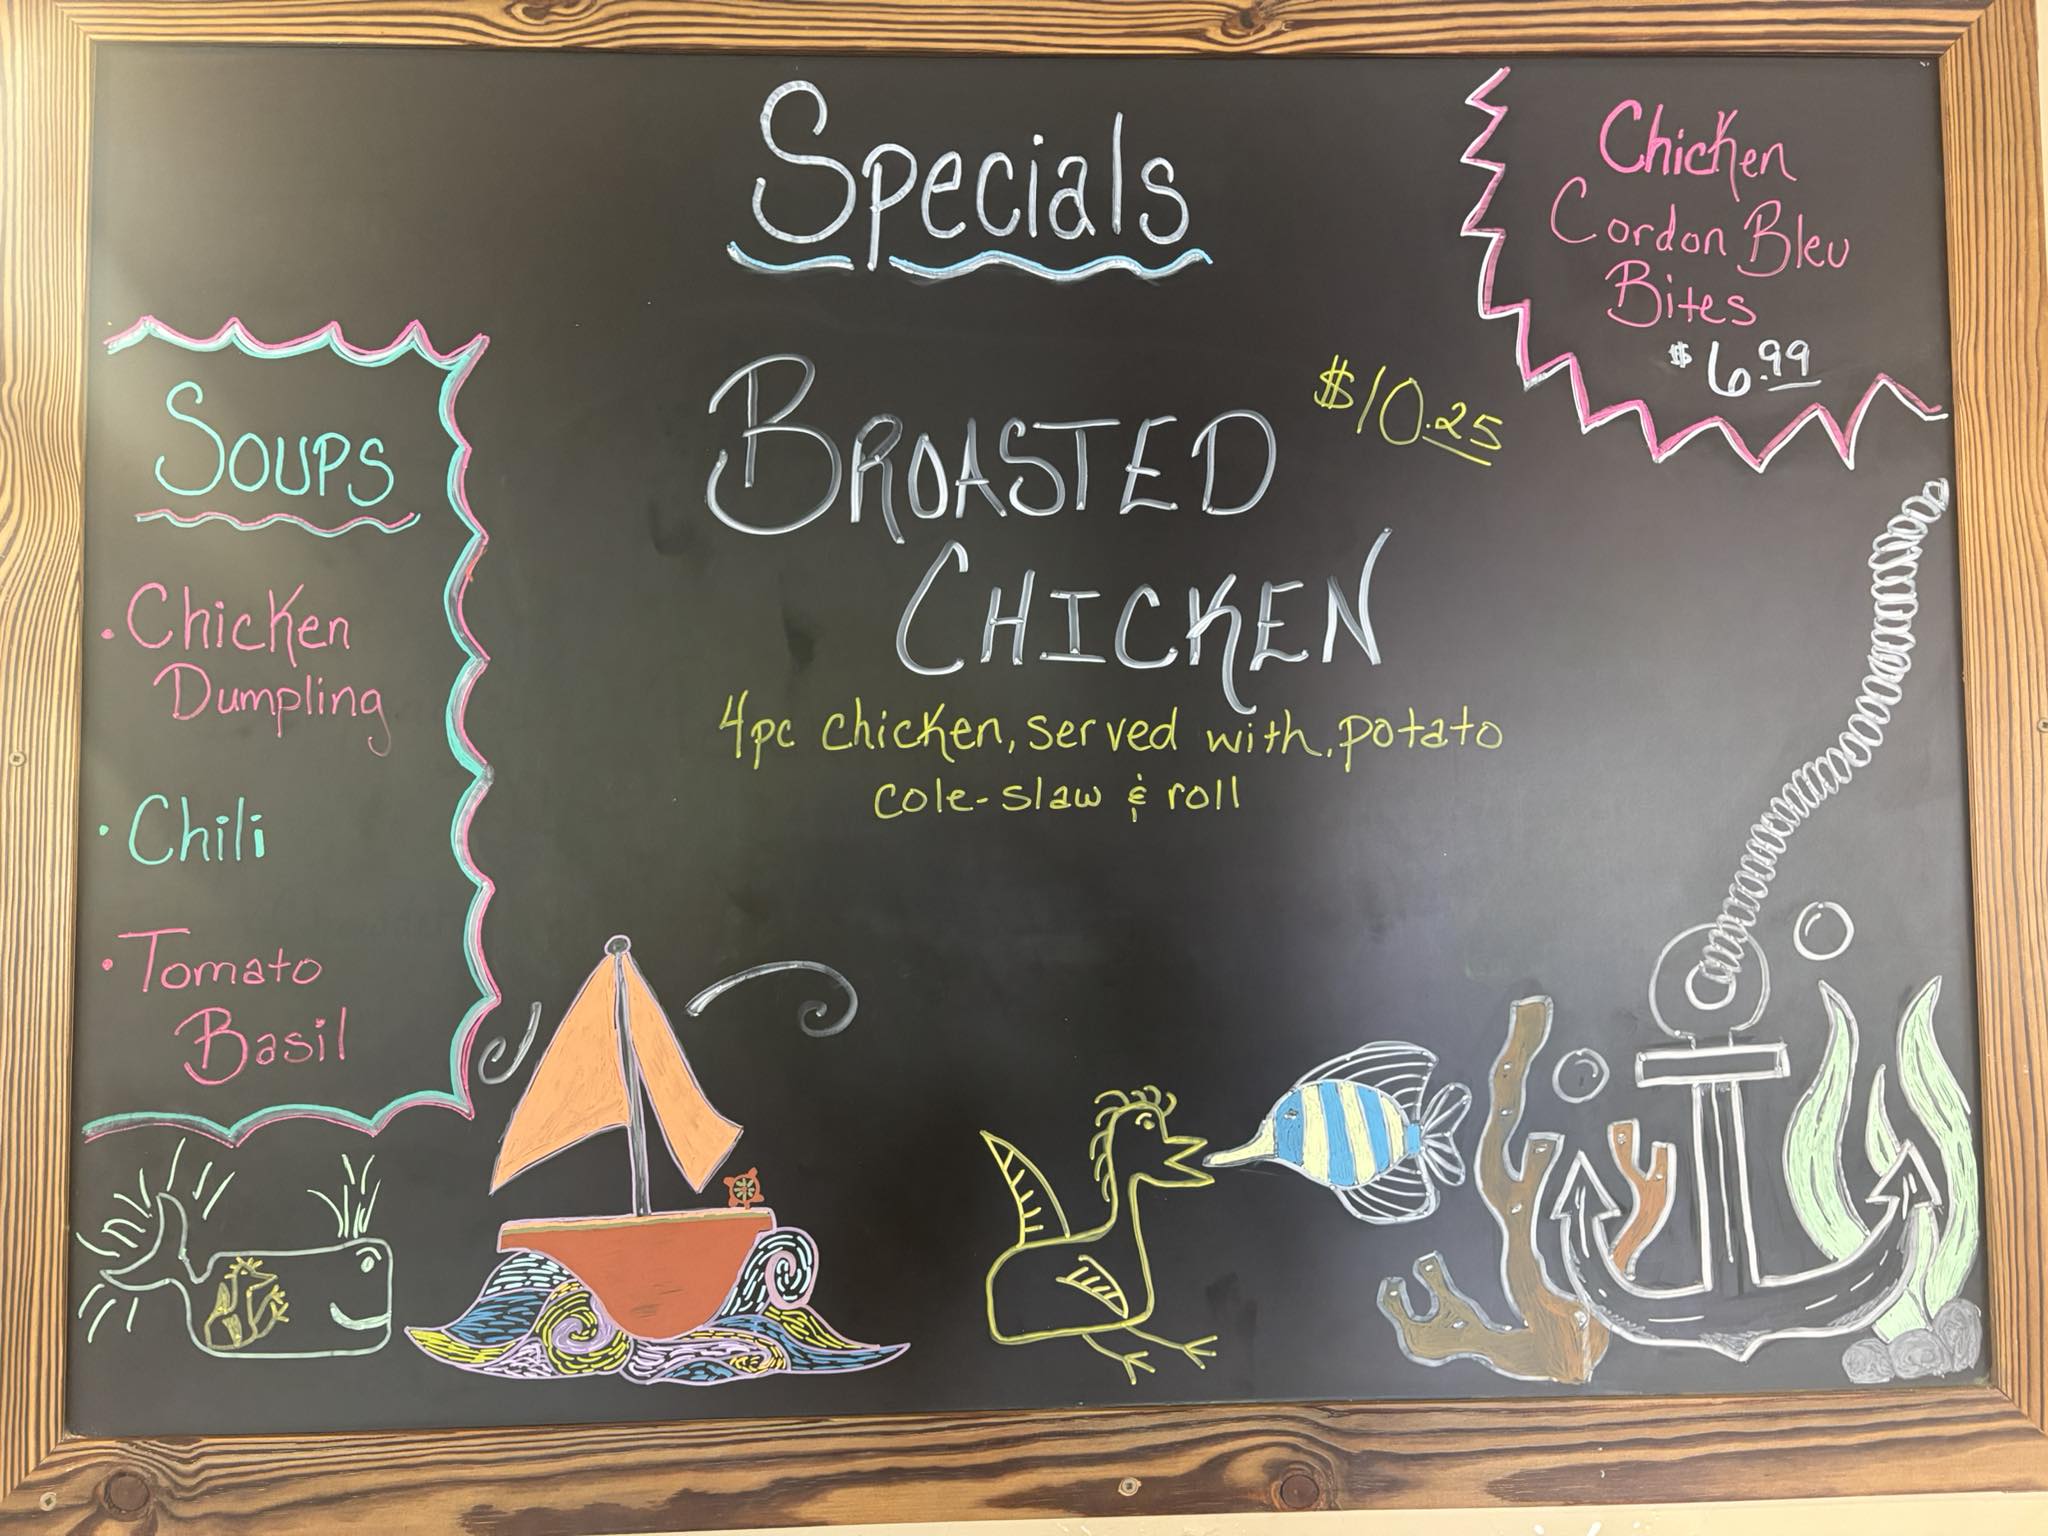 Specials
Chicken
Cordon Bleu
Bites
$6.99
Soups
• Chicken
Dumpling
• Chili
• Tomato
Basil
BROASTED
$10.25
CHICKEN
4pc chicken, served with, potato
cole-slaw & roll